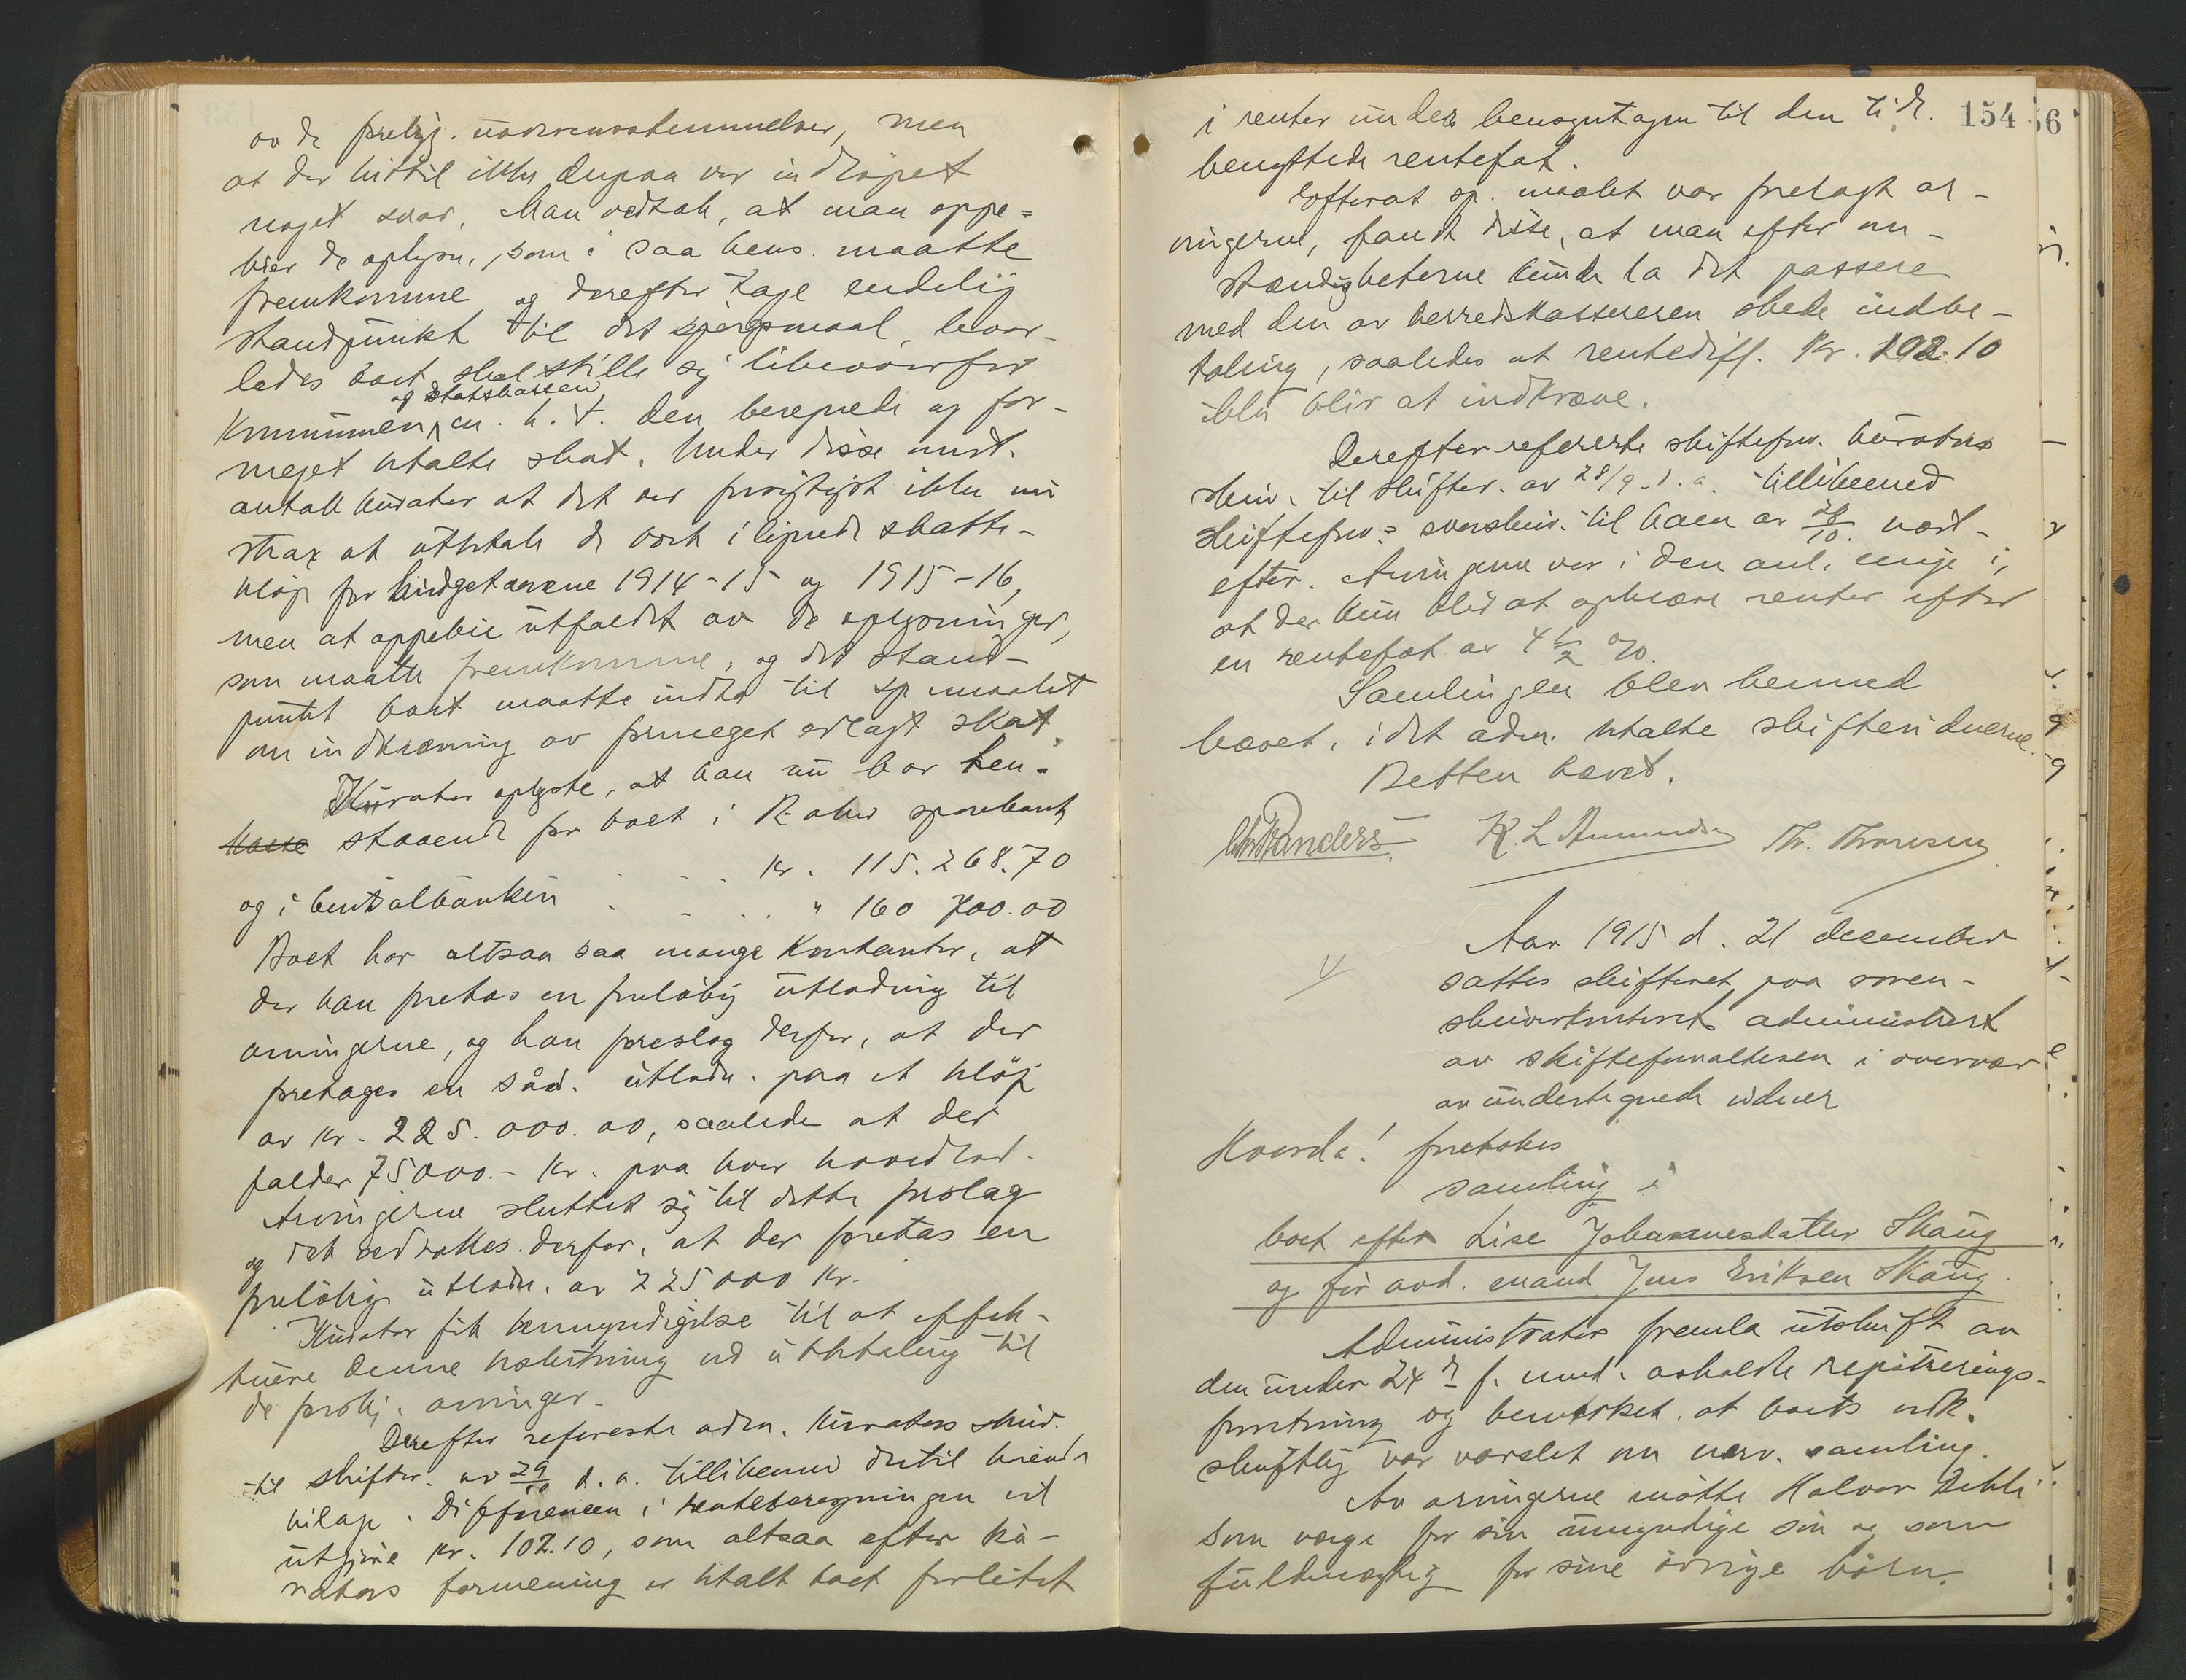 av de forelig. uoverensstemmelser, men
at der hittil ikke derpaa var indløpet
noget svar. Man vedtok, at man oppe=
bier de oplysn., som i saa hens. maatte
fremkomme og derefter tage endelig
standpunkt til det spørgsmaal, hvor-
ledes boet skal stille sig likeoverfor
og statskassen
kommunen, m. h. t. den beregnede og for-
meget betalte skat. Under disse omst.
antok kurator at det var forsigtigst ikke nu
strax at utbetale de boet ilignede skatte-
beløp for budgetaarene 1914-15 og 1915-16,
men at oppebie utfaldet av de oplysninger,
som maatte fremkomme, og det stand-
punkt boet maatte indta til sp.maalet
om indkræving av formeget erlagt skat.
Kurator oplyste, at han nu har hen-
staaende for boet i R-aker sparebank
kr. 115.268.70
og i Centralbanken . . . . " 160 700.00
Boet har altsaa saa mange kontanter, at
der kan foretas en foreløbig utlodning til
arvingerne, og han foreslog derfor, at der
foretages en såd. utlodn. paa et beløp
av kr. 225.000.00, saaledes at der
falder 75000.- kr. paa hver hovedlod.
Arvingerne sluttet sig til dette forslag
og det vedtokes derfor, at der foretas en
foreløbig utlodn. av 225000 kr.
Kurator fik bemyndigelse til at effek-
tuere denne beslutning ved utbetaling til
de forskj. arvinger.
Derefter refererte adm. kurators skriv.
til skifter. av 29/10 d. a. tillikemed dertil hørende
bilage. Differencen i renteberegningen vil
utgjøre kr. 102.10, som altsaa efter ku-
rators formening er betalt boet forlitet
154
i renter under hensyntagen til den tid.
benyttede rentefot.
Efterat sp.maalet var forelagt ar-
vingerne, fandt disse, at man efter om-
stændigheterne kunde la det passere
med den av herredskassereren skede indbe-
taling, saaledes at rentediff. kr. 102.10
ikke blir at indkræve.
Derefter refererte skifteforv. kurators
skriv. til skifter. av 28/9 d. a. tillikemed
skifteforv.s svarskriv. til ham av 28/10 næst-
efter. Arvingerne var i den anl. enige i,
at der kun blir at opkræve renter efter
en rentefot av 4 1/2 %.
Samlingen blev hermed
hævet, idet adm. betalte skiftevidnerne.
Retten hævet.
Chr. Randers K. L. Amundsen Th. Thoresen
Aar 1915 d. 21 december
sattes skifteret paa soren-
skriverkontoret administrert
av skifteforvalteren i overvær
av undertegnede vidner
Hvorda! foretokes
samling i
boet efter Lise Johannesdatter Skaug
og før avd. mand Jens Eriksen Skaug.
Administrator fremla utskrift av
den under 24d f. mnd. avholdte registrerings-
forretning og bemerket, at boets vedk.
skriftlig var varslet om nærv. samling.
Av arvingerne møtte Halvor Dehli
som verge for sin umyndige søn og som
fuldmægtig for sine øvrige børn.